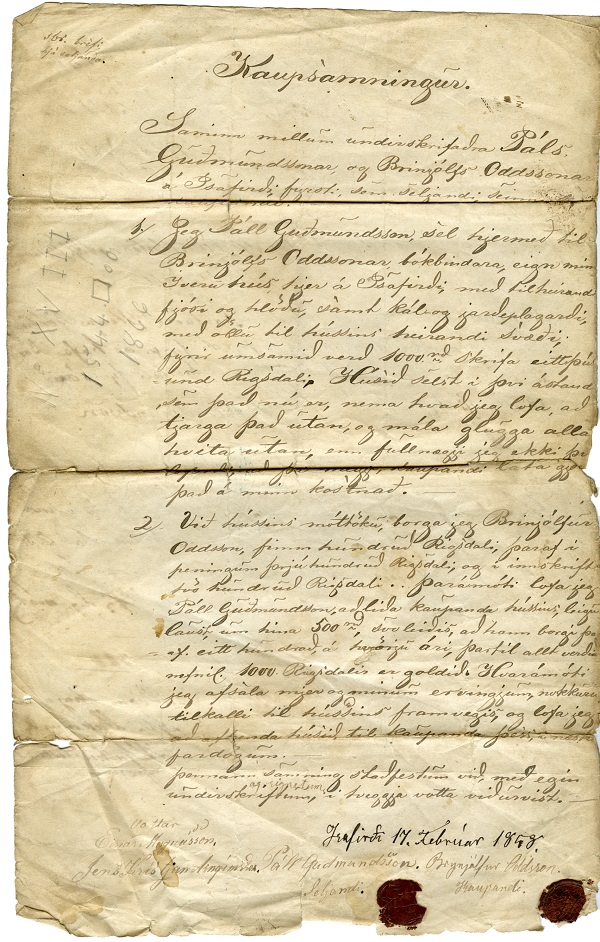 sbr. bréfi
hjá seljanda.
Kaupsamningur.
Saminn millum undirskrifaðra Páls
Guðmundssonar, og Brinjólfs Oddssonar
á Ísafirði, fyrsti, sem seljandi, seinni
1) Jeg Páll Guðmundsson, sel hjermeð til
Brinjólfs Oddssonar, bókbindara, eign mín
íveru hús, hjer á Ísafirði, með tilheirand
fjósi og hlöðu, samt kál og jarðeplagarði,
með öllu til hússins heirandi svæði,
fyrir umsamið verð 1000 rd skrifa eittþús
und Rigsdali. Húsið selst í því ástand
sem það nú er, nema hvað jeg lofa, að
tjarga það utan, og mála glugga alla
hvíta utan, enn fullnægi jeg ekki
kaupandi láta
það á minn kostnað.
2) Við hússins móttöku, borga jeg Brinjólfur
Oddsson, fimm hundruð Rigsdali, þaraf í
peningum þrjú hundruð Rigsdali, og í innskrift
tvö hundruð Rigsdali. Þarámóti lofa jeg
Páll Guðmundsson, að líða kaupanda hússins, leigu
laust um hina 500 rd, svoleiðis, að hann borgi
eitt hundrað, á hvörju ári, þartil allt verðið
nefnil. 1000 Rigsdalir er goldið. Hvarámóti
jeg afsala mjer og mínum ervingjum, nokkuru
tilkalli til hússins framvegis, og lofa jeg
að afhenda húsið til kaupanda
fardögum.
þennann samning, staðfestum við, með egin
undirskriftum, og signetum, í tveggja votta viðurvist.
Vottar
Magnússon.
Ísafirði 17. Febrúar 1858.
Páll Guðmundsson. Brynjólfur Oddsson.
Seljandi. Kaupandi.
No XVIII
1544 □
1866